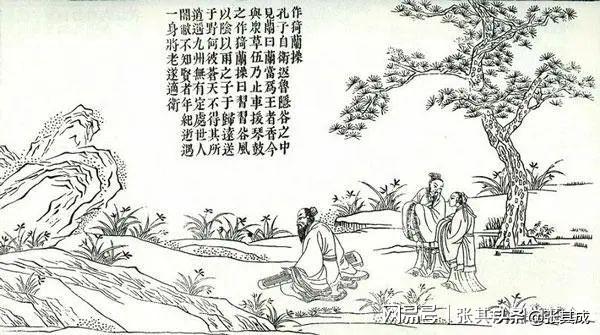 作猗蘭操
孔子自衛返魯隱谷之中
見蘭曰蘭當爲王者香今
與衆草伍乃止車援琴鼓
之作猗蘭操曰習習谷風
以陰以雨之子于歸遠送
于野何彼蒼天不得其所
逍遥九州無有定處世人
闇蔽不知賢者年紀逝邁
一身將老遂適衛
搜狐号@张其成
头条 @张其成